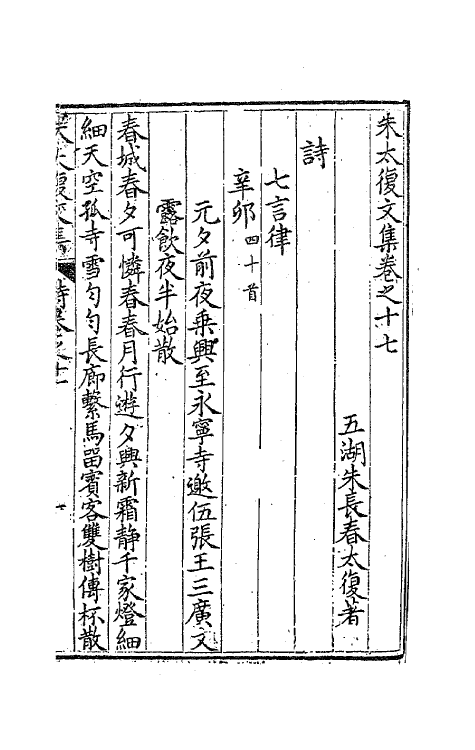 朱太復文集卷之十七
五湖朱長春太復著
詩
七言律
辛卯四十首
元夕前夜乗興至永寧寺邀伍張王三廣文
露飲夜半始散
春城春夕可憐春春月行遊夕興新霜静千家燈細
細天空孤寺雪勻勻長廊繫馬留賓客雙樹傳杯散